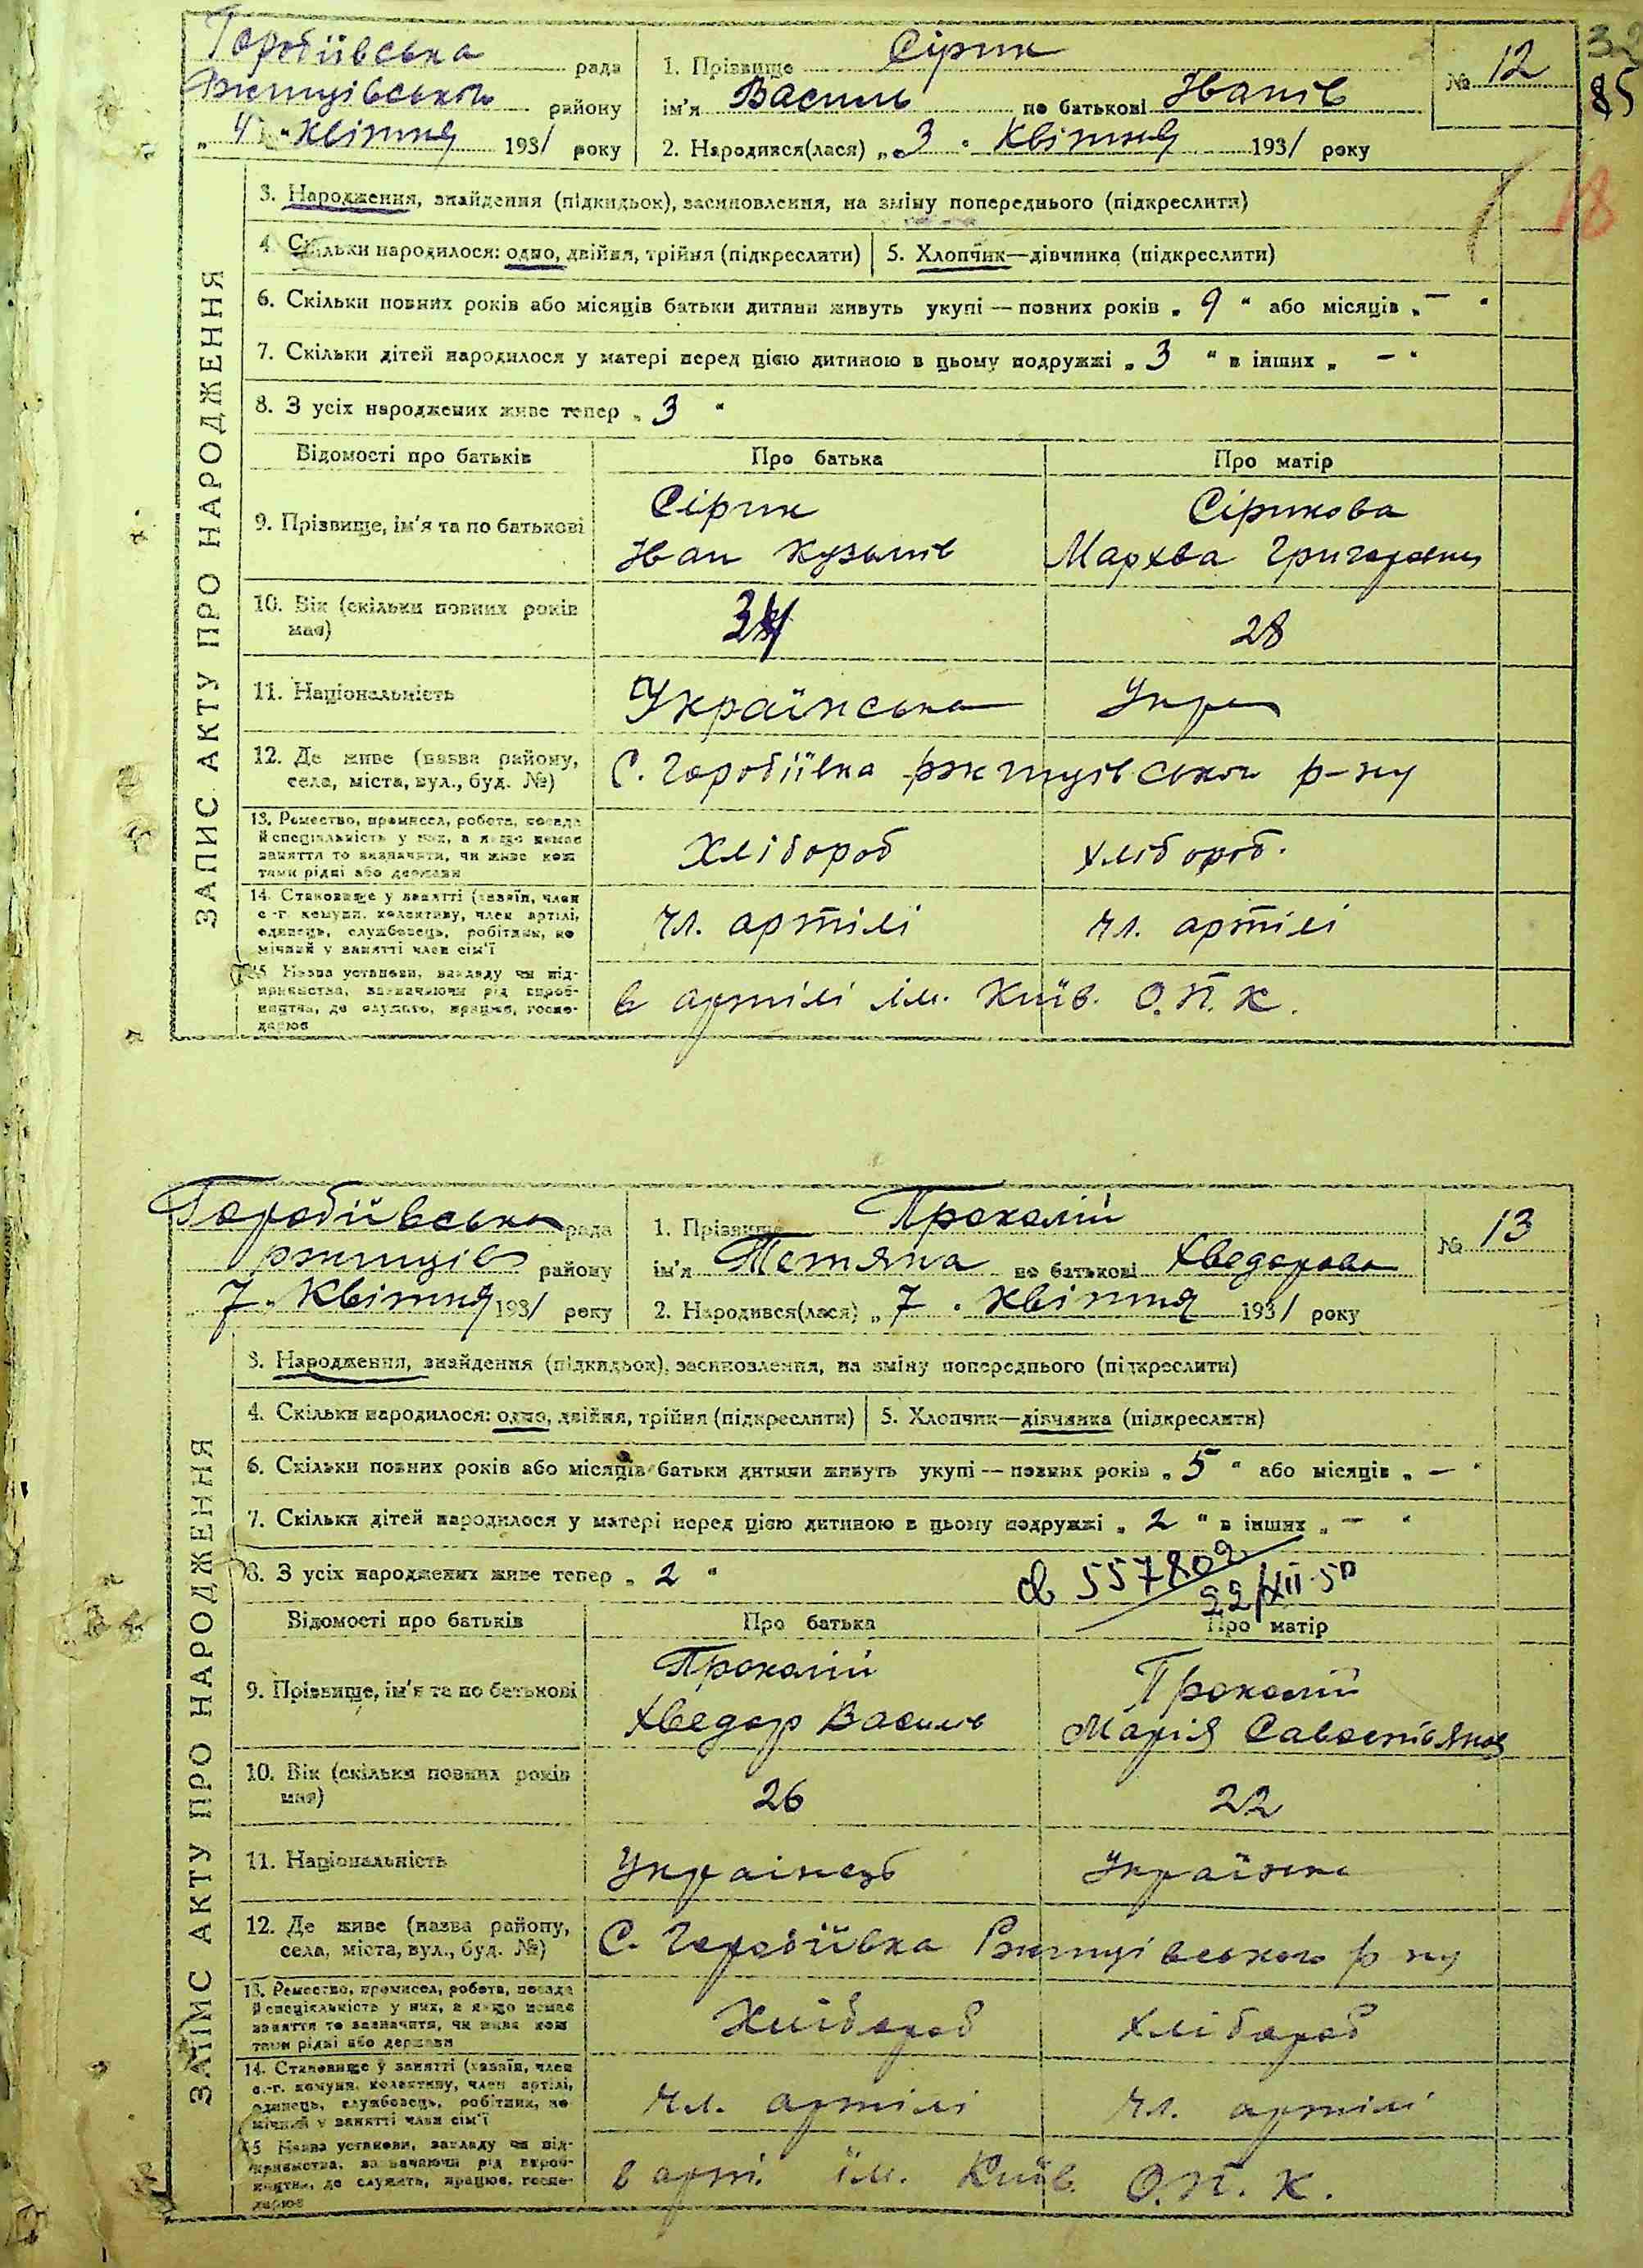 32
85
18
Горобіївська рада
Ржищівського району
„4“ квітня 1931 року
1. Прізвище Сірик
ім'я Василь по батькові Іванів
№ 12
2. Народився(лася) „3“ Квітня 1931 року
ЗАПИС АКТУ ПРО НАРОДЖЕННЯ
3. Народження, знайдення (підкидьок), засиновлення, на зміну попереднього (підкреслити)
4. Скільки народилося: одно, двійня, трійня (підкреслити)
5. Хлопчик—дівчинка (підкреслити)
6. Скільки повних років або місяців батьки дитини живуть укупі — повних років „9“ або місяців „—“
7. Скільки дітей народилося у матері перед цією дитиною в цьому подружжі „3“ в інших „—“
8. З усіх народжених живе тепер „3“
Відомості про батьків
Про батька
Про матір
9. Прізвище, ім'я та по батькові
Сірик
Іван Кузьмів
Сірикова
Мархва Григоровна
10. Вік (скільки повних років
має)
28
11. Національність
Українська
Укра
12. Де живе (назва району,
села, міста, вул., буд. №)
С. Горобіївка Ржищівського р-ну
13. Ремество, промисел, робота, посада
й спеціяльність у них, а якщо немає
заняття то визначити, чи живе кош
тами рідні або держави
Хлібороб
Хлібороб.
14. Становище у занятті (хазяїн, член
с.-г. комуни, колективу, член артілі,
одинець, службовець, робітник, по
мічний у занятті член сім'ї
чл. артілі
чл. артілі
15 Назва установи, закладу чи під-
приємства, зазначаючи рід вироб-
ництва, де служить, працює, госпо-
дарює
в артілі ім. Київ. О.П.К.
Горобіївська рада
Ржищів району
„7“ Квітня 1931 року
1. Прізвище Прокопій
ім'я Тетяна по батькові Хведорова
№ 13
2. Народився(лася) „7“ квітня 1931 року
ЗАПИС АКТУ ПРО НАРОДЖЕННЯ
3. Народження, знайдення (підкидьок), засиновлення, на зміну попереднього (підкреслити)
4. Скільки народилося: одно, двійня, трійня (підкреслити)
5. Хлопчик—дівчинка (підкреслити)
6. Скільки повних років або місяців батьки дитини живуть укупі — повних років „5“ або місяців „—“
7. Скільки дітей народилося у матері перед цією дитиною в цьому подружжі „2“ в інших „—“
8. З усіх народжених живе тепер „2“
557802
22/XII-50
Відомості про батьків
Про батька
Про матір
9. Прізвище, ім'я та по батькові
Прокопій
Хведор Василів
Прокопій
Марія Савостіянов
10. Вік (скільки повних років
має)
26
22
11. Національність
Українець
Українка
12. Де живе (назва району,
села, міста, вул., буд. №)
С. Горобіївка Ржищівського р ну
13. Ремество, промисел, робота, посада
й спеціяльність у них, а якщо немає
заняття то зазначити, чи живе кош
тами рідні або держави
Хлібороб
Хлібороб
14. Становище у занятті (хазяїн, член
с.-г. комуни, колективу, член артілі,
одинець, службовець, робітник, по
мічний у занятті член сім'ї
чл. артілі
чл. артілі
15 Назва установи, закладу чи під-
приємства, зазначаючи рід вироб-
ництва, де служить, працює, госпо-
дарює
в арті. їм. Київ. О.П.К.